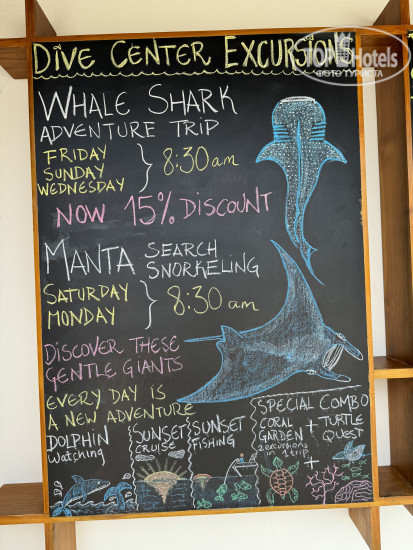 DIVE CENTER EXCURSIONS
TopHotels
ФОТО ТУРИСТА
WHALE SHARK
ADVENTURE TRIP
FRIDAY
SUNDAY
WEDNESDAY
8:30 am
NOW 15% DISCOUNT
MANTA SEARCH
SNORKELING
SATURDAY
MONDAY
8:30 am
DISCOVER THESE
GENTLE GIANTS
EVERY DAY IS
A NEW ADVENTURE
DOLPHIN
Watching
SUNSET
CRUISE
SUNSET
FISHING
SPECIAL COMBO
CORAL
GARDEN
+ TURTLE
QUEST
2 excursions
in 1 trip
+